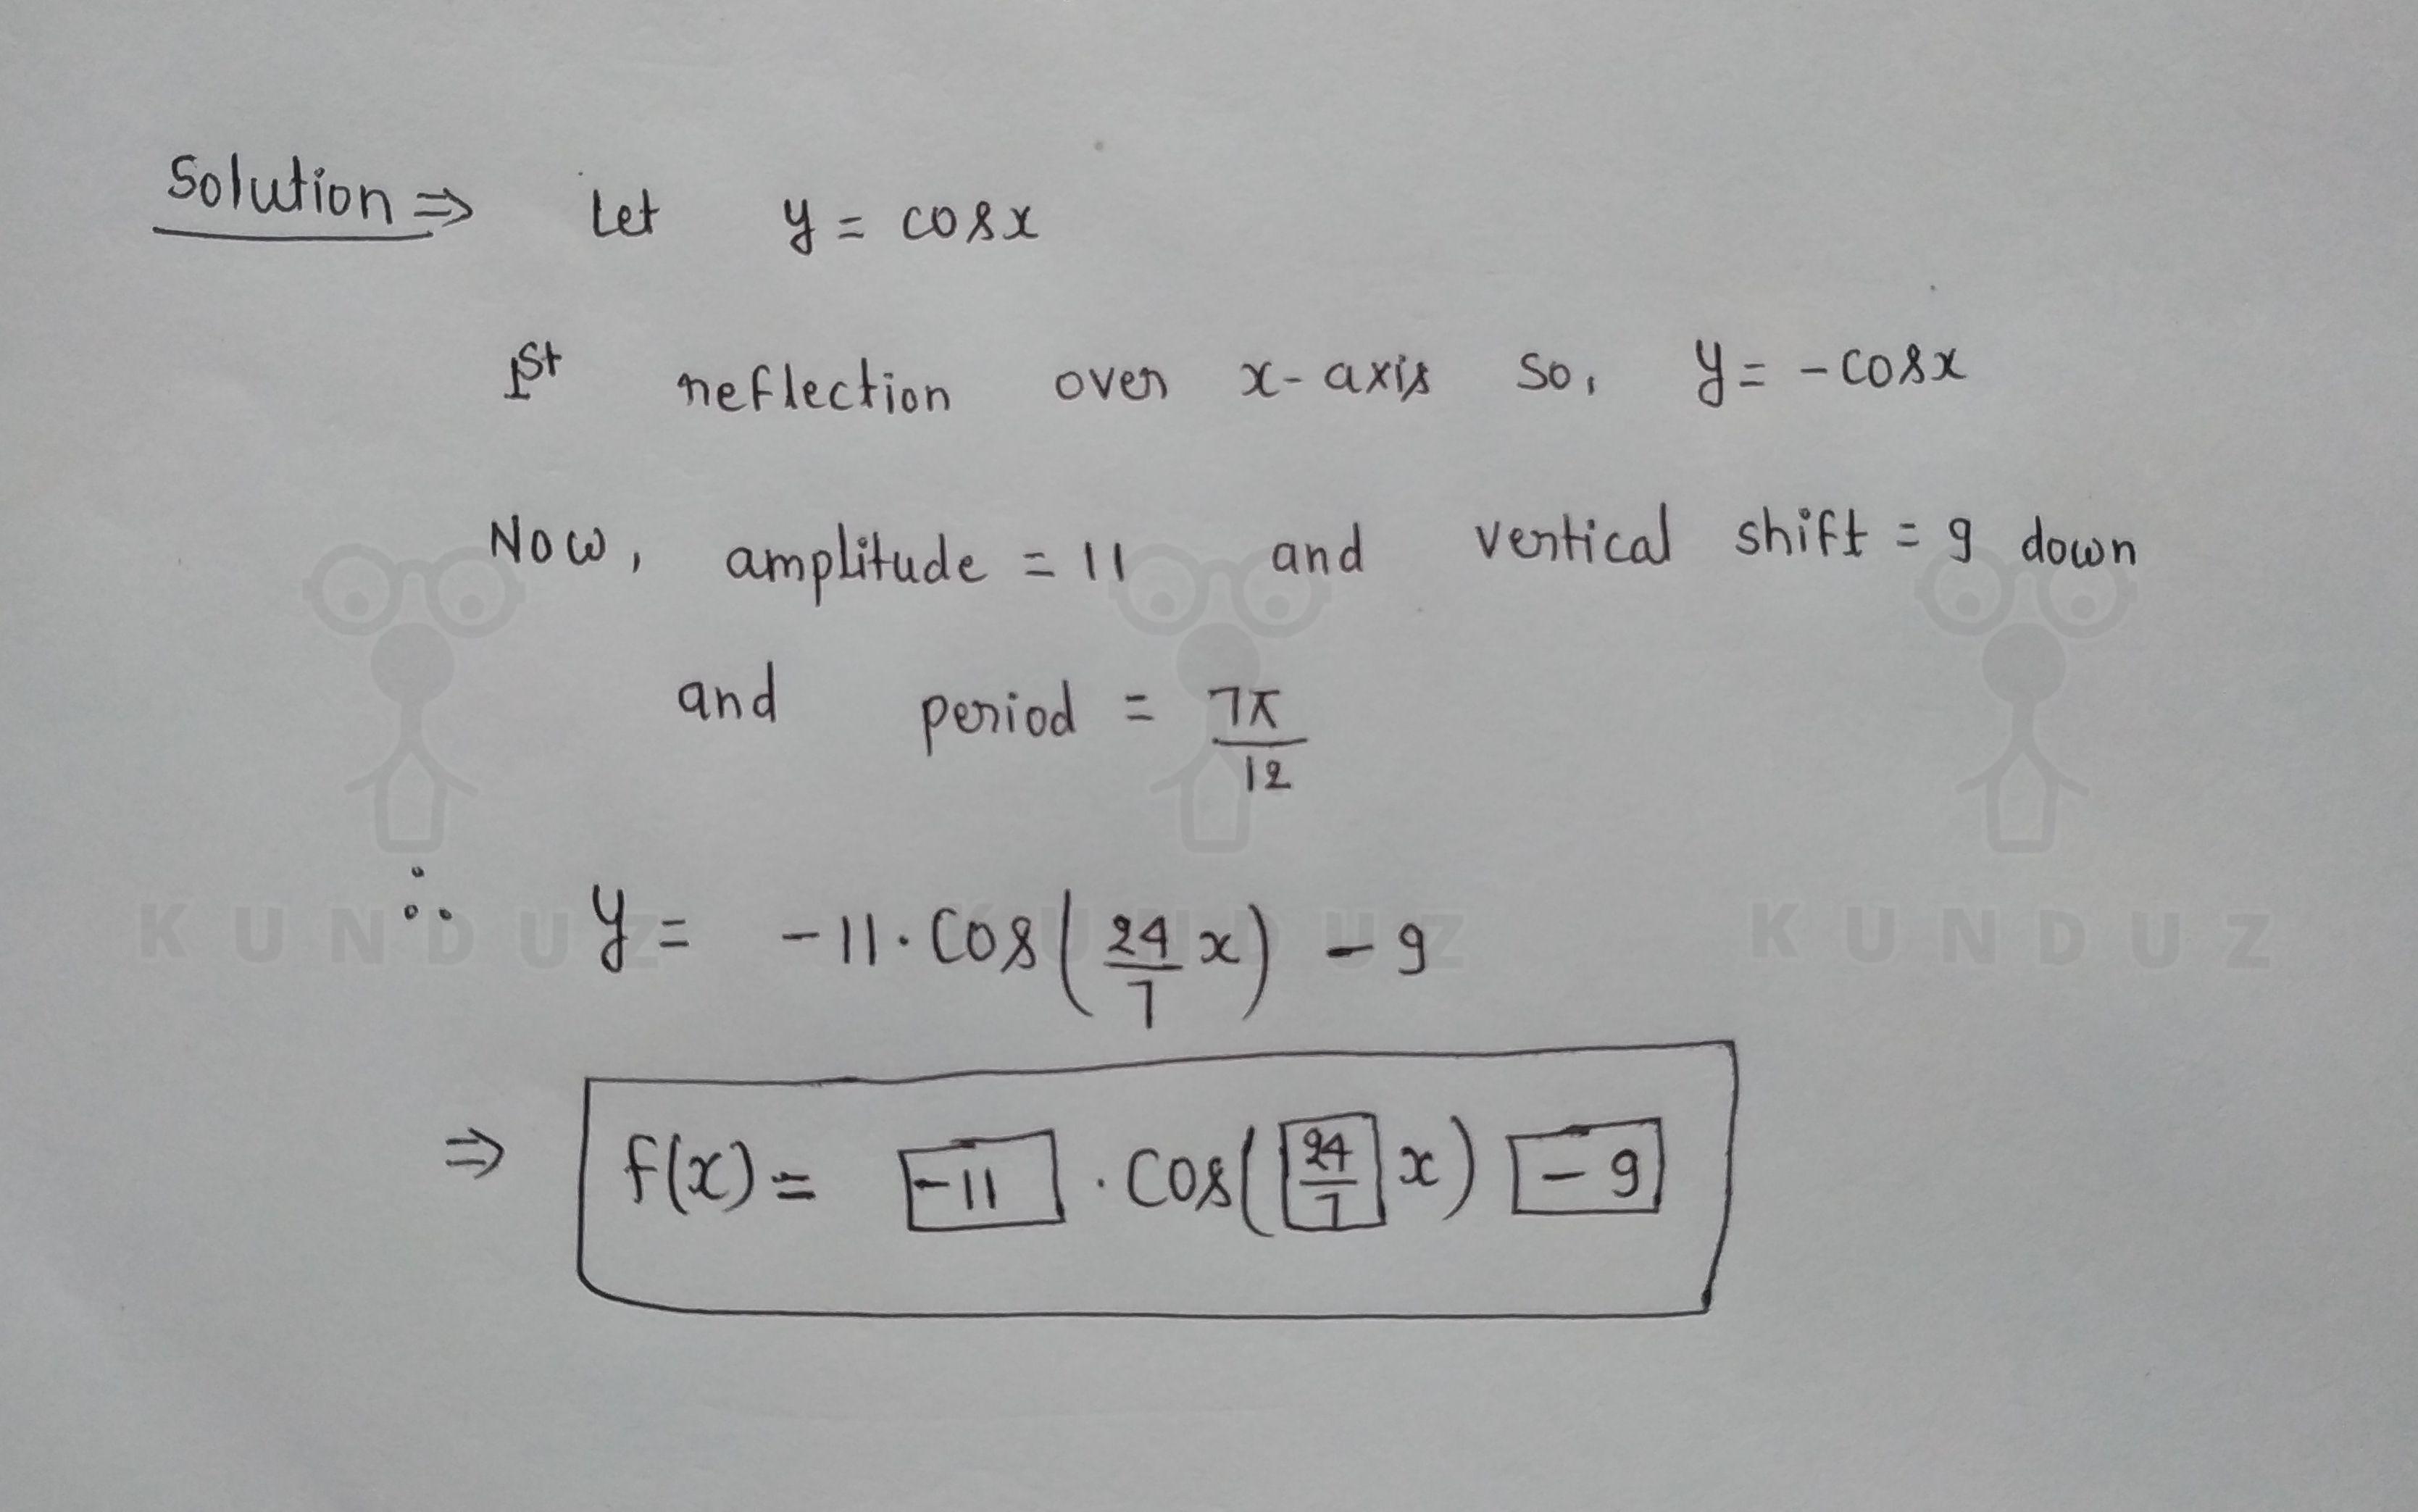 Solution ⇒ Let y = cosx
1st reflection over x-axis so, y = -cosx
Now, amplitude = 11 and vertical shift = 9 down
and period = 7π/12
∴ y = -11·cos(24/7 x) - 9
⇒ f(x) = -11 · cos(24/7 x) - 9
KUNDUZ KUNDUZ KUNDUZ